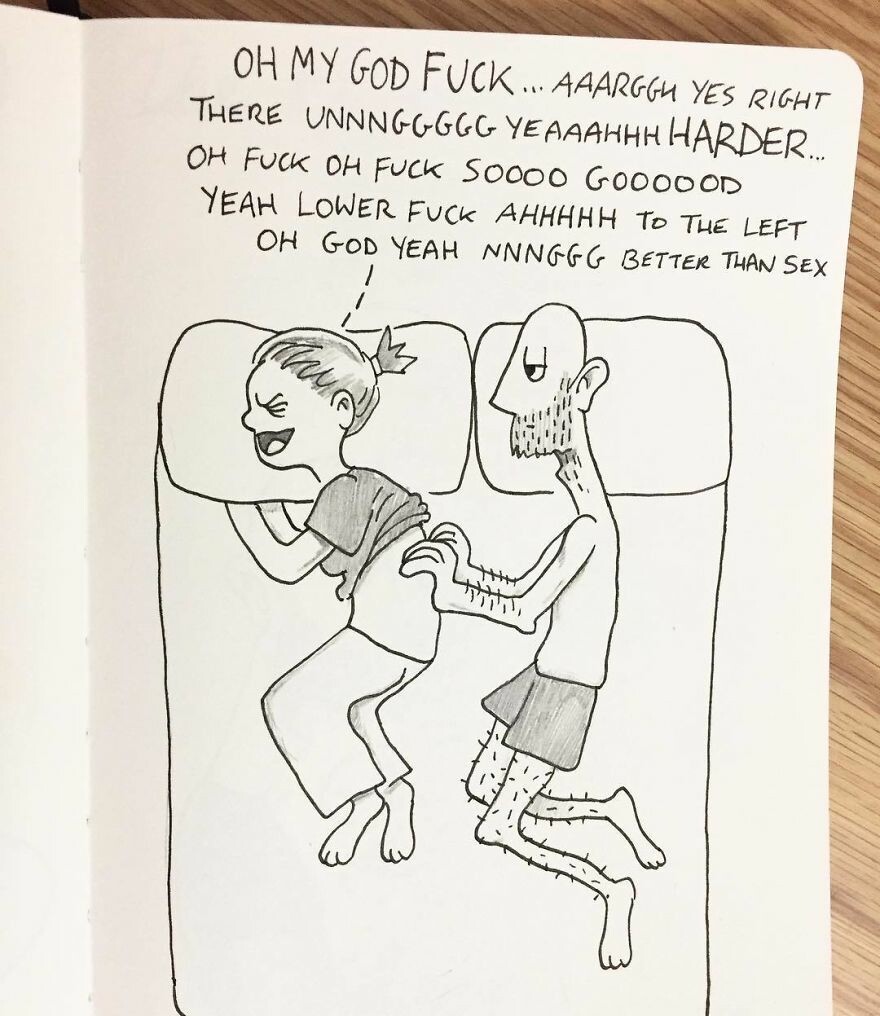 OH MY GOD FUCK... AAARGGH YES RIGHT
THERE UNNNGGGGG YEAAAHHH HARDER...
OH FUCK OH FUCK SOOOO GOOOOOD
YEAH LOWER FUCK AHHHHH TO THE LEFT
OH GOD YEAH NNNGGG BETTER THAN SEX